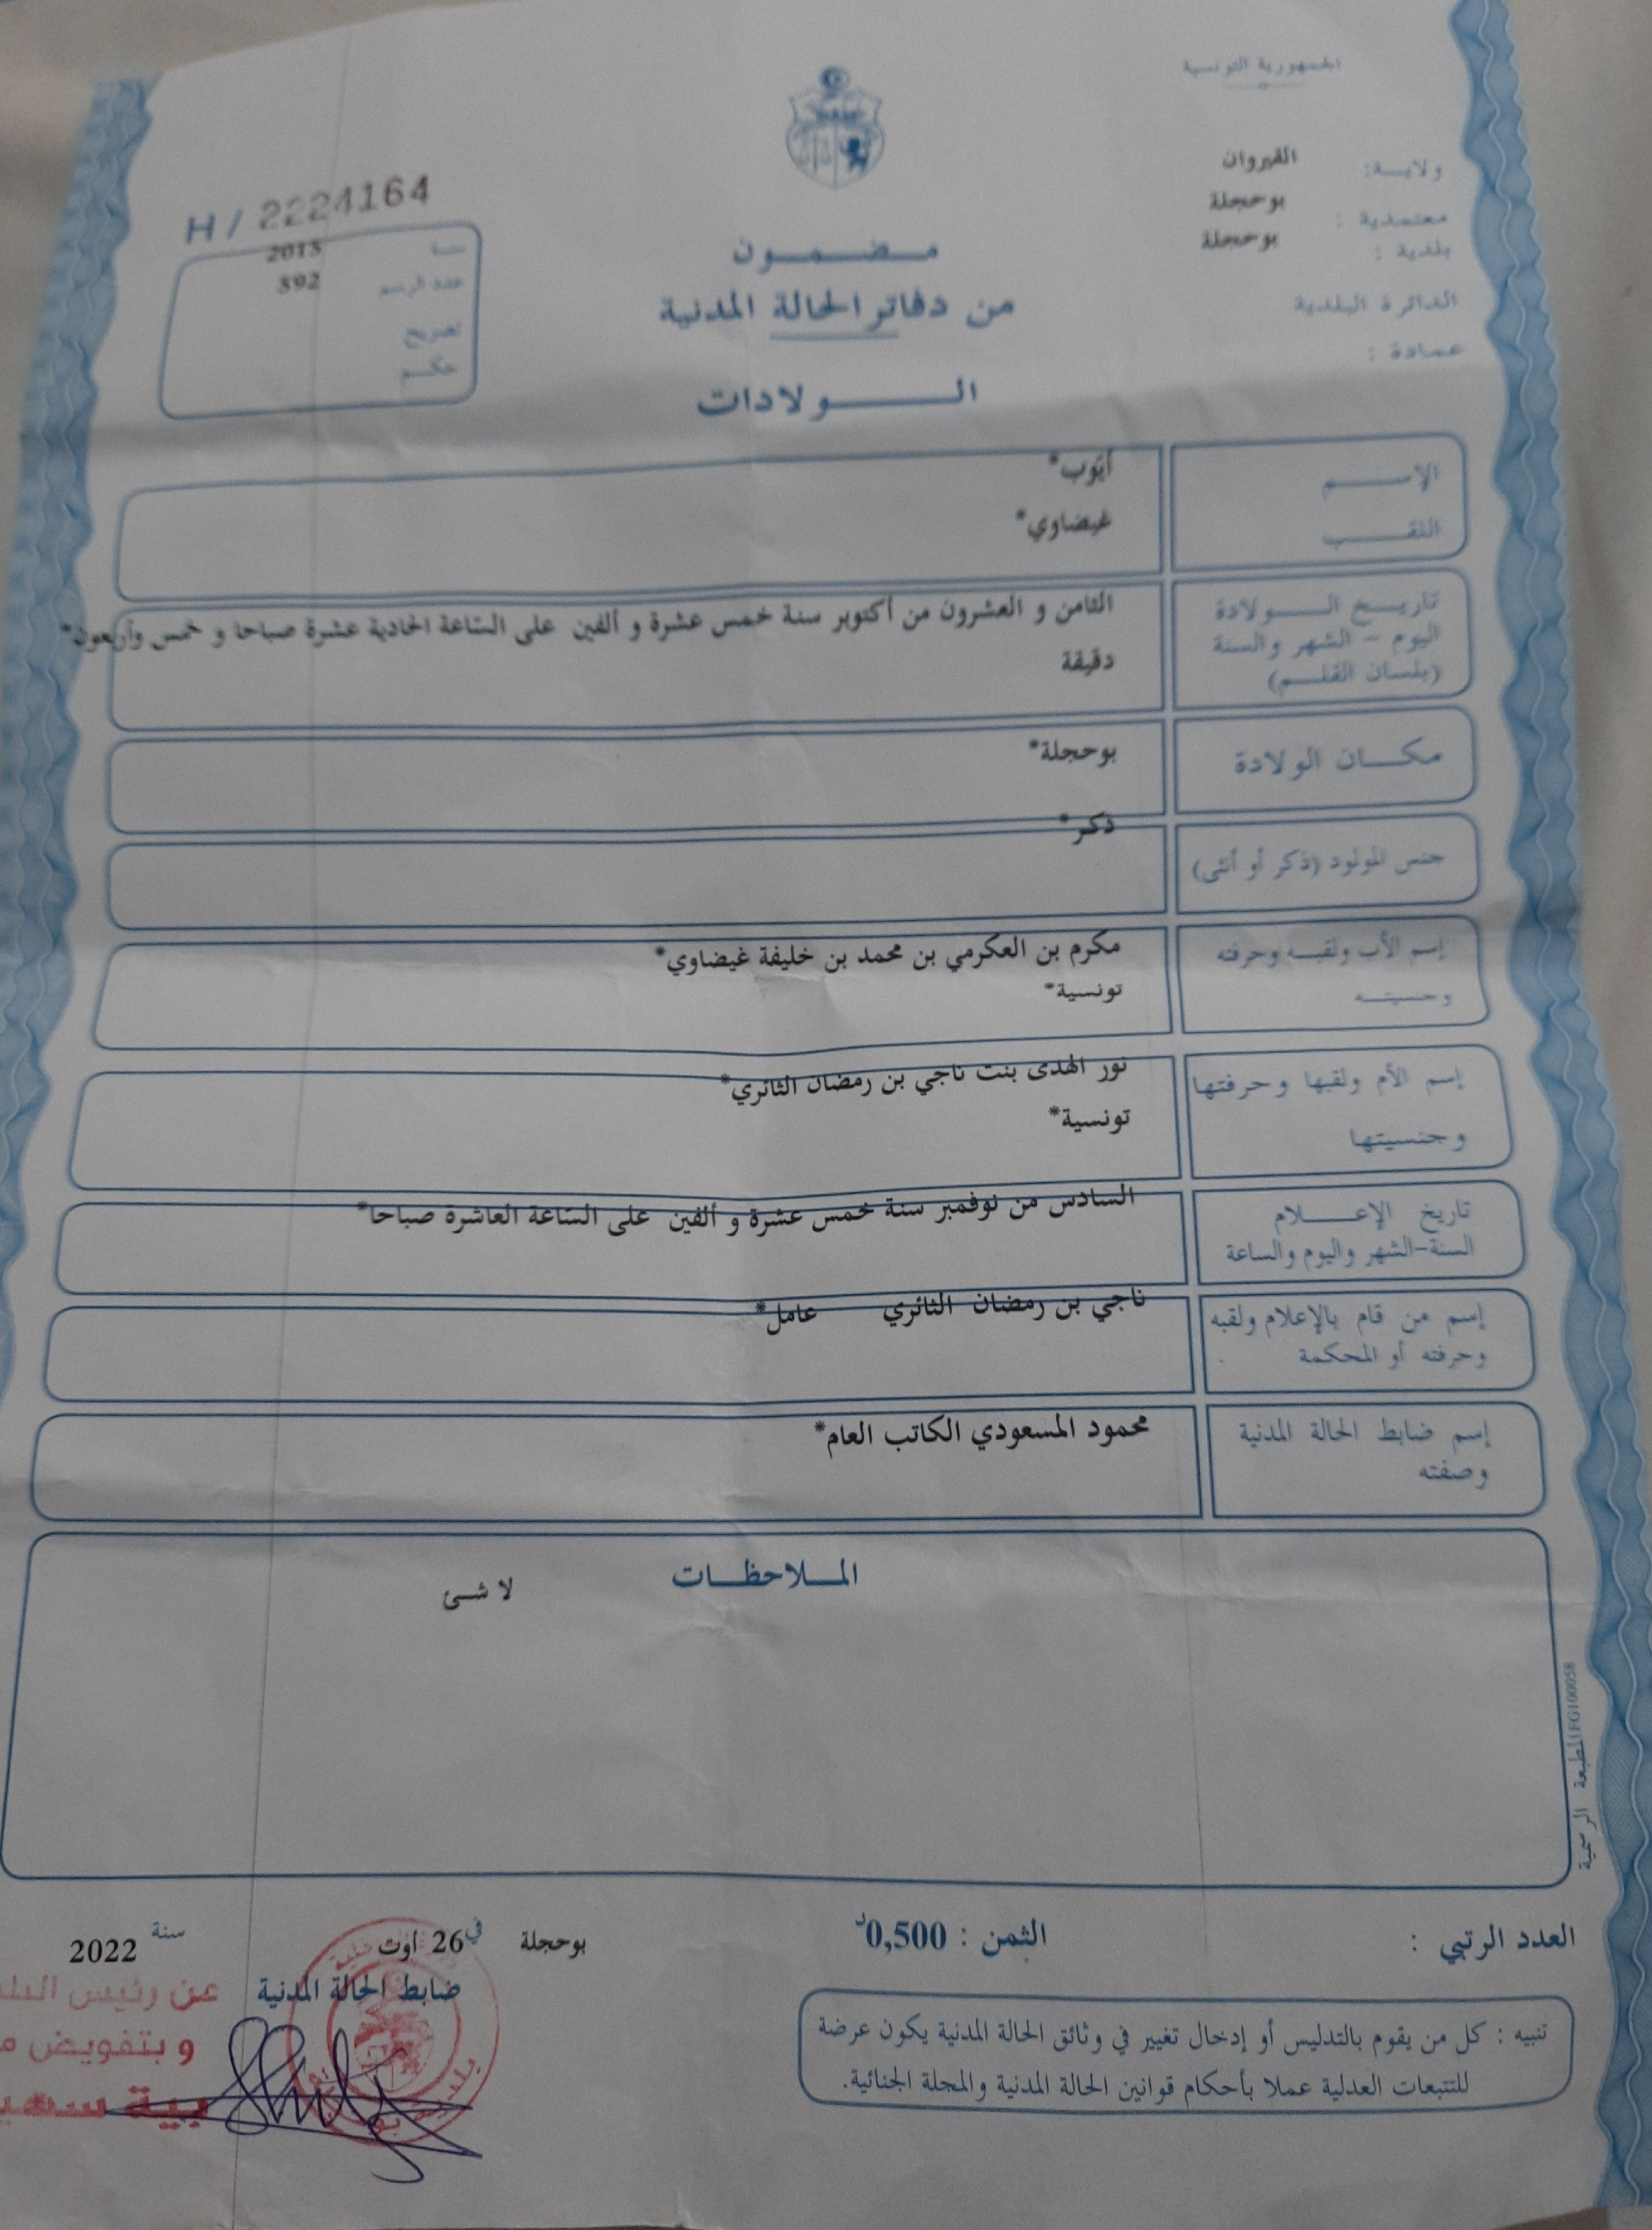 الجمهورية التونسية
ولايــة: القيروان
معتمدية : بوحجلة
بلدية : بوحجلة
الدائرة البلدية
عمادة :
H / 2224164
سنة 2015
عدد الرسم 592
تصريح
حكم
مضمون
من دفاتر الحالة المدنية
الولادات
الإسم أيوب*
اللقب غيضاوي*
تاريخ الولادة
اليوم - الشهر والسنة
(بلسان القلم)
الثامن و العشرون من أكتوبر سنة خمس عشرة و ألفين على الساعة الحادية عشرة صباحا و خمس وأربعون*
دقيقة
مكان الولادة بوحجلة*
جنس المولود (ذكر أو أنثى) ذكر*
إسم الأب ولقبه وحرفته مكرم بن العكرمي بن محمد بن خليفة غيضاوي*
وجنسيته تونسية*
إسم الأم ولقبها وحرفتها نور الهدى بنت ناجي بن رمضان الثائري*
وجنسيتها تونسية*
تاريخ الإعلام السادس من نوفمبر سنة خمس عشرة و ألفين على الساعة العاشرة صباحا*
السنة-الشهر واليوم والساعة
إسم من قام بالإعلام ولقبه ناجي بن رمضان الثائري عامل*
وحرفته أو المحكمة
إسم ضابط الحالة المدنية محمود المسعودي الكاتب العام*
وصفته
الملاحظات
لا شئ
المطبعة الرسمية FG100058
العدد الرتبي :
الثمن : 0,500د
بوحجلة في 26 أوت سنة 2022
ضابط الحالة المدنية
عن رئيس
و بتفويض
تنبيه : كل من يقوم بالتدليس أو إدخال تغيير في وثائق الحالة المدنية يكون عرضة
للتتبعات العدلية عملا بأحكام قوانين الحالة المدنية والمجلة الجنائية.